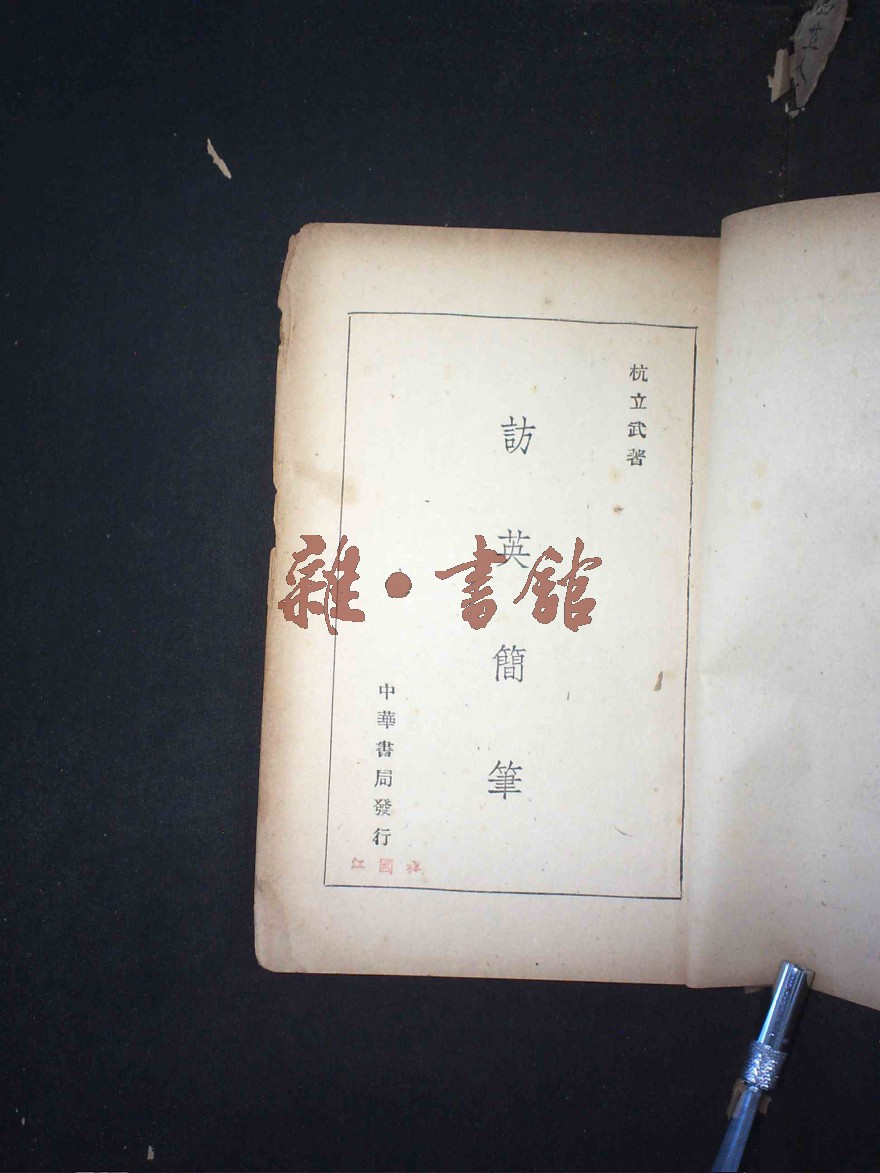 杭立武著
訪英簡筆
中華書局發行
雜·書館